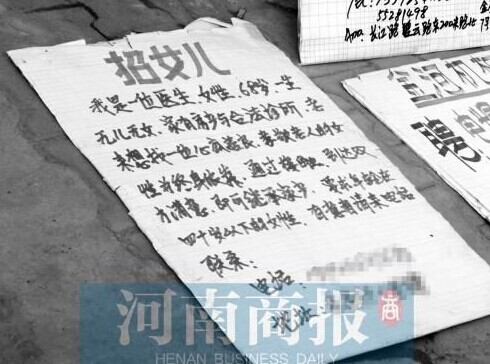 招女儿
我是一位医生,女性,68岁,一生
无儿无女,家有房产与合法诊所,老
来想找一位心有慈民,孝敬老人的女
性为终身依靠,通过接触,到达双
方满意,即可继承家产,要求年龄在
四十岁以下的女性,有意者请来电话
联系:
电话:
地址:
55281498
金河
聘
河南商报
商
HENAN BUSINESS DAILY